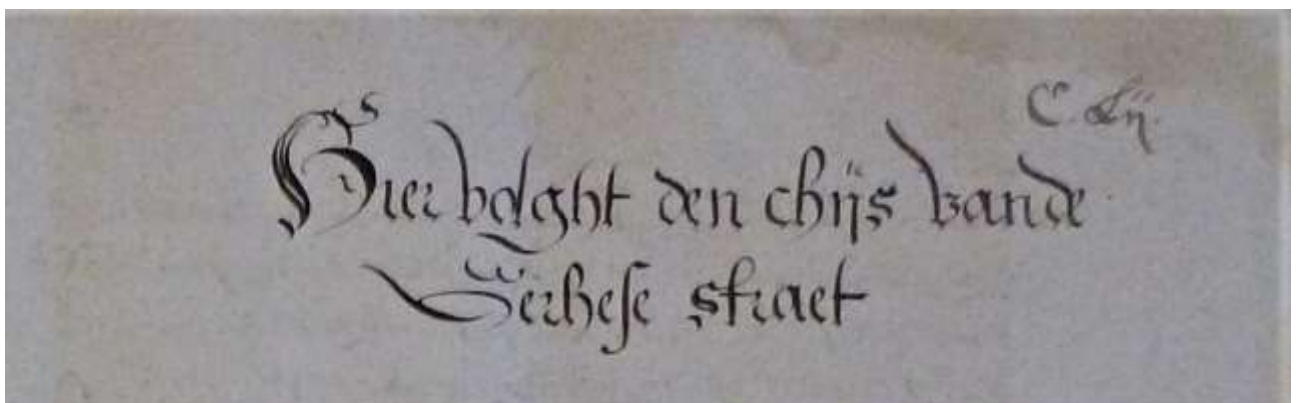 Hier volght den chijs vande
Terhese straet